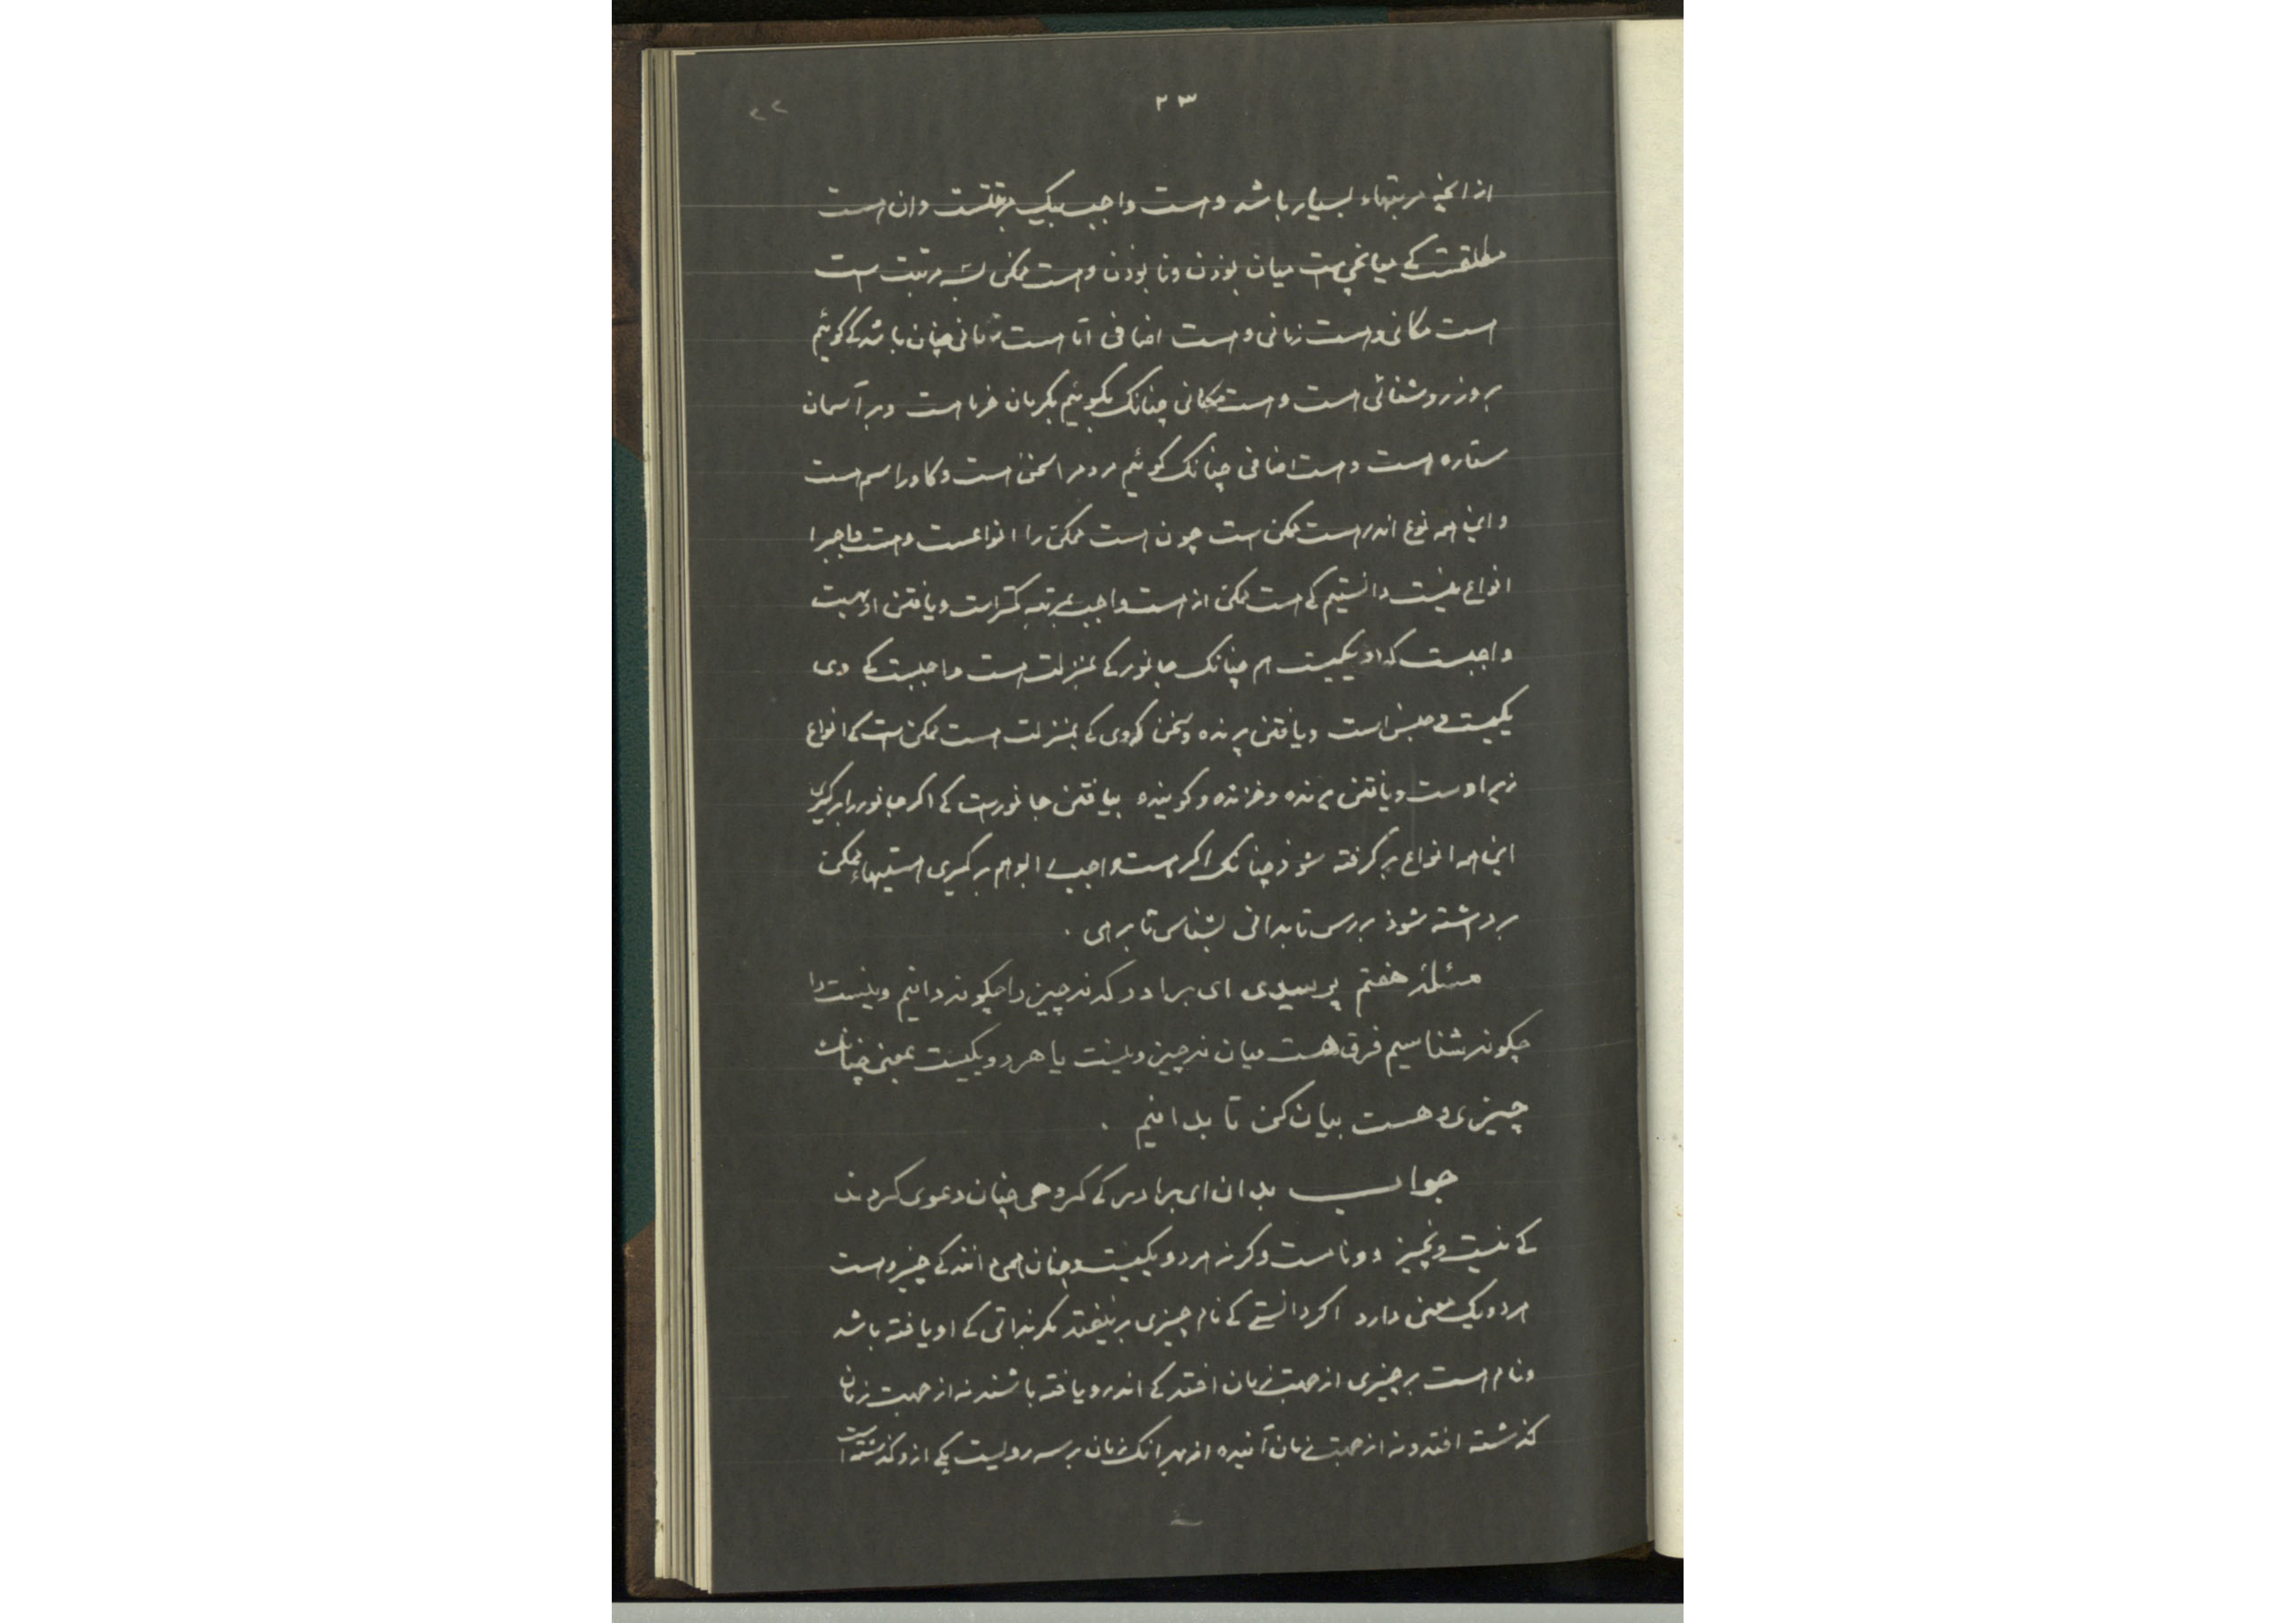 ۲۳
از انچه مرتبتهاء بسیار باشد و هست واجب بیک مرتبتست وان هست
مطلقست کی میانجی است میان بوذن ونا بوذن وهست ممکن بسه مرتبت است
هست مکانی وهست زمانی وهست اضافی امّا هست زمانی چنان باشد کی کوئیم
بروز روشنائی است وهست مکانی چنانک بکوئیم بکرمان خرما است وبر آسمان
ستاره است وهست اضافی چنانک کوئیم مردم را سخن است وکاو را سم است
واین همه نوع اندر هست ممکن است چون هست ممکن را انواعست وهست واجب را
انواع نیست دانستیم کی هست ممکن از هست واجب بمرتبه کمتر است ویافتن او بهست
واجبست که او یکیست هم چنانک جانور کی بمنزلت هست واجبست کی وی
یکیست و جنس است ویافتن پرنده وسخن کوی کی بمنزلت هست ممکن است کی انواع
زیر اوست ویافتن پرنده وخزنده وکوینده بیافتن جانورست کی اکر جانور را برکیری
این همه انواع برکرفته شوذ چنانک اکر هست واجب را بوهم برکیری هستیهاء ممکن
برداشته شوذ بررس تا بدانی بشناس تا برهی .
مسئلهٔ هفتم پرسیدی ای برادر که نه چیز را چکونه دانیم ونیست را
چکونه شناسیم فرق هست میان نه چیز ونیست یا هر دو یکیست بمعنی چنانک
چیزی و هست بیان کن تا بدانیم .
جواب بدان ای برادر کی کروهی چنان دعوی کردند
کی نیست ونچیز دو نامست وکرنه هر دو یکیست وچنان همی دانند کی چیز وهست
هر دو یک معنی دارد اکر دانستی کی نام چیزی بر نیفتد مکر بذاتی کی او یافته باشد
ونام هست بر چیزی از جهت زمان افتد کی اندرو یافته باشند نه از جهت زمان
کذشته افتد ونه از جهت زمان آینده از بهر انک زمان بر سه رویست یکی ازو کذشته است